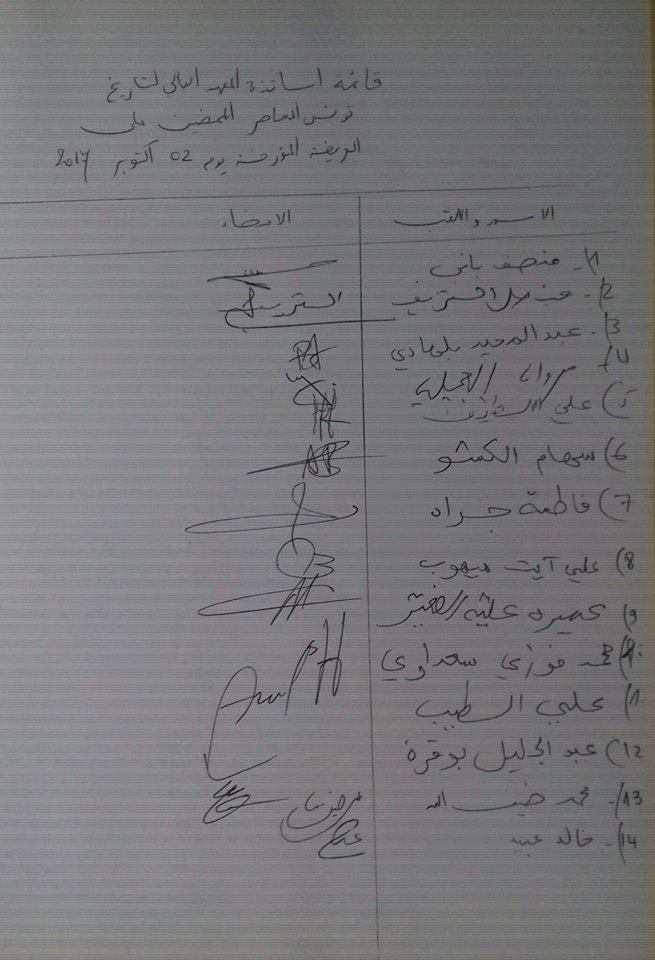 قائمة اساتذة المعهد العالي لتاريخ
تونس المعاصر الممضين على
العريضة المؤرخة يوم 02 أكتوبر 2017
الاسم واللقب الامضاء
1)- منصف باني
2)- الشريف
3)- عبد المجيد بلهادي
4)
5) علي
6) سهام الكشو
7) فاطمة جراه
8) علي آيت ميهوب
9) عميره عليّه الصغيّر
محمد فوزي سعداوي
علي الطيب
12) عبد الجليل بوقرة
13)- محمد ضيف الله
14)- خالد عبيد